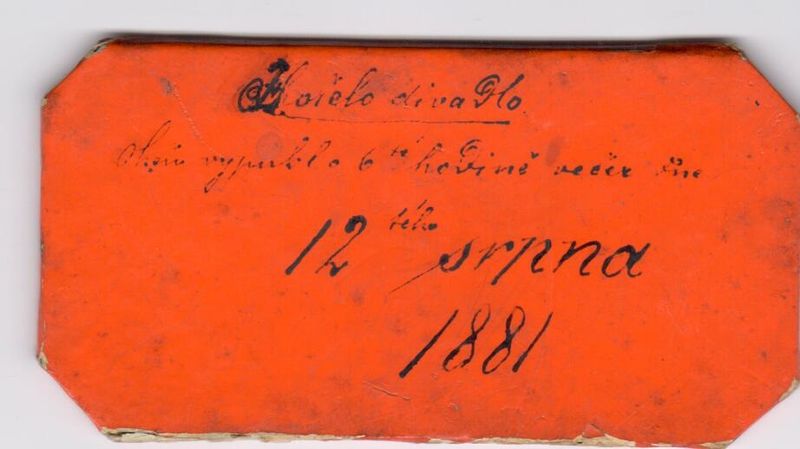 Hořelo divadlo.
Oheň vypukl o 6té hodině večer dne
12tého srpna
1881